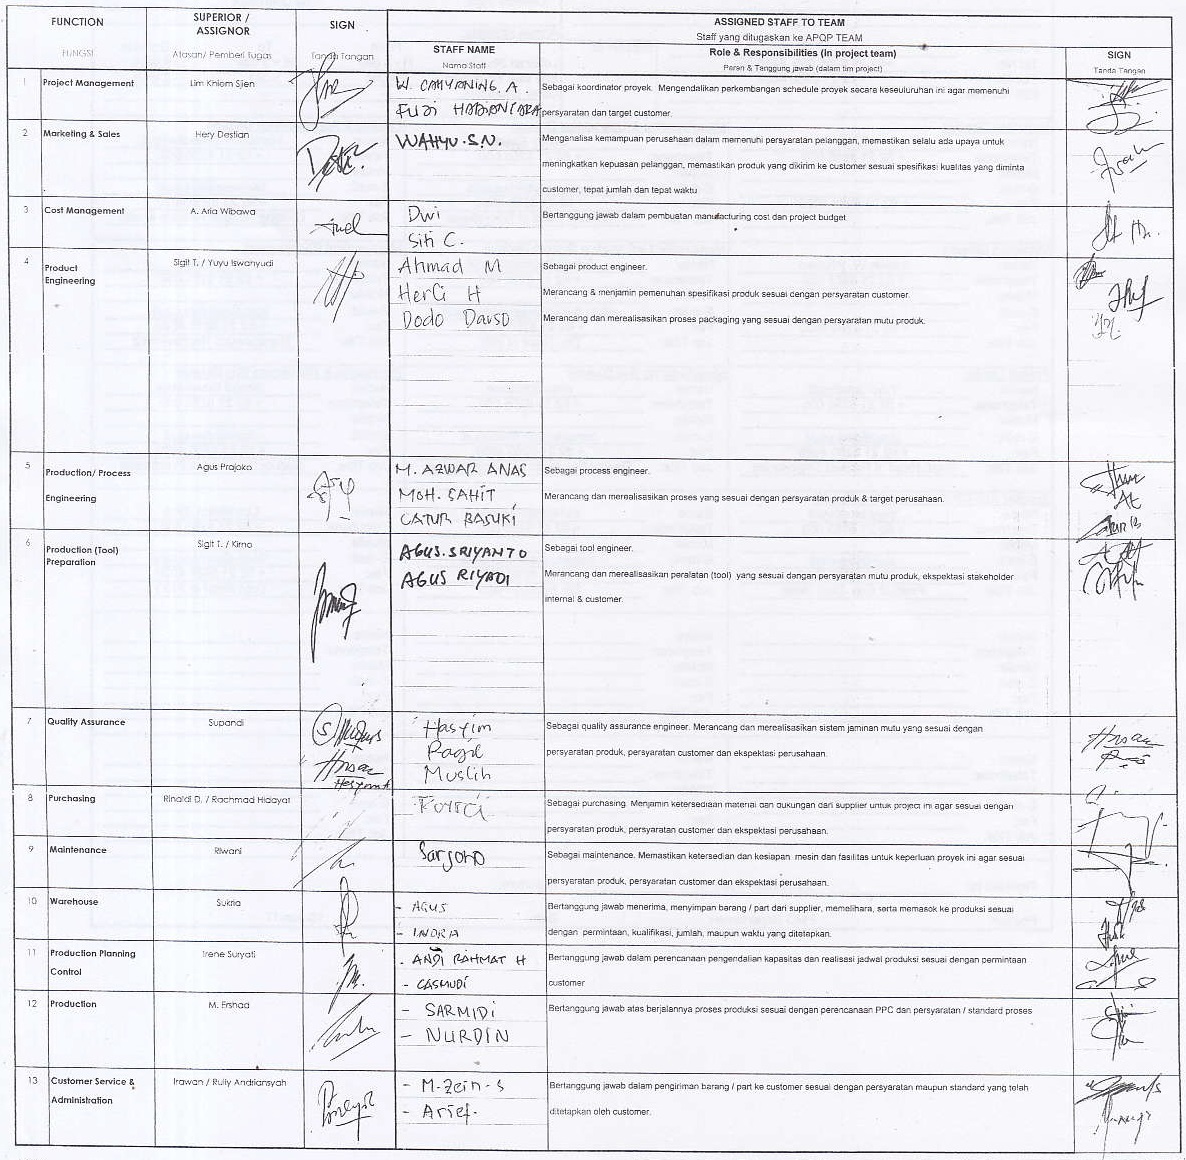 FUNCTION
FUNGSI
SUPERIOR /
ASSIGNOR
Atasan/ Pemberi Tugas
SIGN
Tanda Tangan
ASSIGNED STAFF TO TEAM
Staff yang ditugaskan ke APQP TEAM
STAFF NAME
Nama Staff
Role & Responsibilities (in project team)
Peran & Tanggung jawab (dalam tim project)
SIGN
Tanda Tangan
1
Project Management
Lim Khiom Sjien
W. CAHYANING. A.
Sebagai koordinator proyek. Mengendalikan perkembangan schedule proyek secara keseluruhan ini agar memenuhi
persyaratan dan target customer.
2
Marketing & Sales
Hery Destian
WAHYU.S.N.
Menganalisa kemampuan perusahaan dalam memenuhi persyaratan pelanggan, memastikan selalu ada upaya untuk
meningkatkan kepuasan pelanggan, memastikan produk yang dikirim ke customer sesuai spesifikasi kualitas yang diminta
customer, tepat jumlah dan tepat waktu
3
Cost Management
A. Aria Wibawa
Dwi
Siti C.
Bertanggung jawab dalam pembuatan manufacturing cost dan project budget
4
Product
Engineering
Sigit T. / Yuyu Iswanyudi
Ahmad M
Herli H
Dodo Darso
Sebagai product engineer.
Merancang & menjamin pemenuhan spesifikasi produk sesuai dengan persyaratan customer.
Merancang dan merealisasikan proses packaging yang sesuai dengan persyaratan mutu produk.
5
Production/ Process
Engineering
Agus Projoko
M. AZWAR ANAS
MOH. SAHIT
CATUR BASUKI
Sebagai process engineer.
Merancang dan merealisasikan proses yang sesuai dengan persyaratan produk & target perusahaan.
6
Production (Tool)
Preparation
Sigit T. / Kirno
AGUS.SRIYANTO
AGUS RIYADI
Sebagai tool engineer.
Merancang dan merealisasikan peralatan (tool) yang sesuai dengan persyaratan mutu produk, ekspektasi stakeholder
internal & customer.
7
Quality Assurance
Supandi
Hasyim
Ragil
Muslih
Sebagai quality assurance engineer. Merancang dan merealisasikan sistem jaminan mutu yang sesuai dengan
persyaratan produk, persyaratan customer dan ekspektasi perusahaan.
8
Purchasing
Rinaldi D. / Rachmad Hidayat
Sebagai purchasing. Menjamin ketersediaan material dan dukungan dari supplier untuk project ini agar sesuai dengan
persyaratan produk, persyaratan customer dan ekspektasi perusahaan.
9
Maintenance
Riwani
Sarjono
Sebagai maintenance. Memastikan ketersedian dan kesiapan mesin dan fasilitas untuk keperluan proyek ini agar sesuai
persyaratan produk, persyaratan customer dan ekspektasi perusahaan.
10
Warehouse
Sukria
- AGUS
- INDRA
Bertanggung jawab menerima, menyimpan barang / part dari supplier, memelihara, serta memasok ke produksi sesuai
dengan permintaan, kualifikasi, jumlah, maupun waktu yang ditetapkan.
11
Production Planning
Control
Irene Suryati
- ANDI RAHMAT H
- CASMUDI
Bertanggung jawab dalam perencanaan pengendalian kapasitas dan realisasi jadwal produksi sesuai dengan permintaan
customer
12
Production
M. Ershad
- SARMIDI
- NURDIN
Bertanggung jawab atas berjalannya proses produksi sesuai dengan perencanaan PPC dan persyaratan / standard proses
13
Customer Service &
Administration
Irawan / Rully Andriansyah
- M-Zein-S
- Arief.
Bertanggung jawab dalam pengiriman barang / part ke customer sesuai dengan persyaratan maupun standard yang telah
ditetapkan oleh customer.